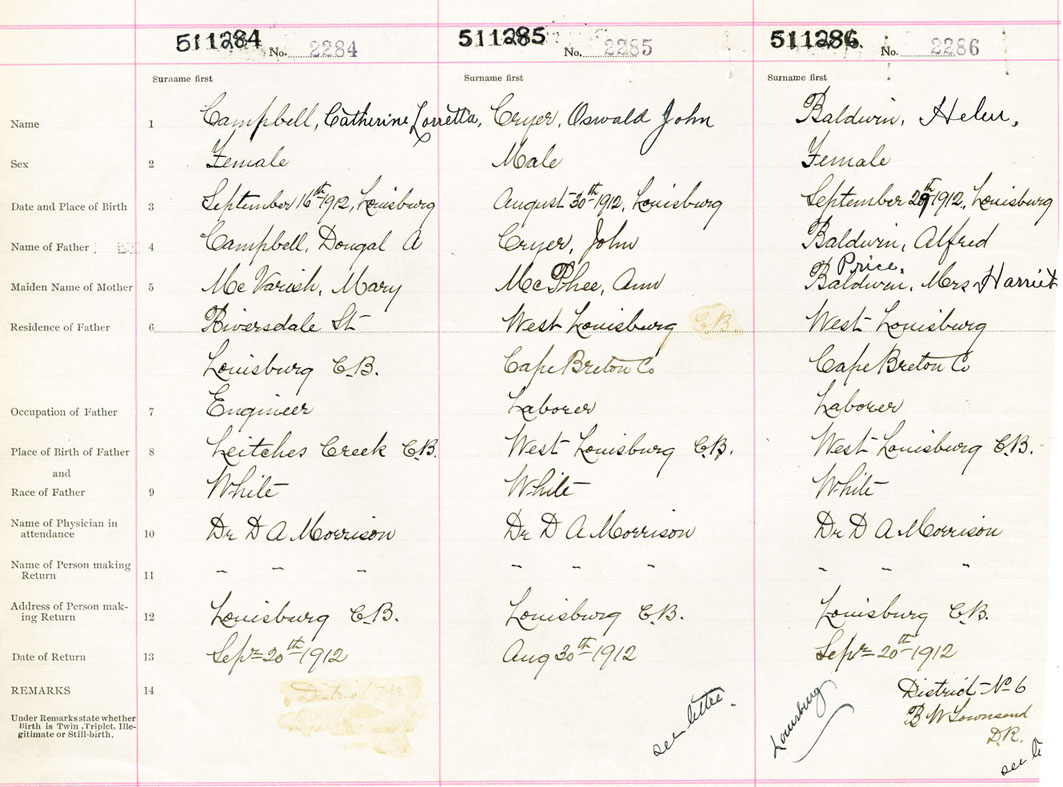 511284 No. 2284 511285 No. 2285 511286 No. 2286
Surname first Surname first Surname first
Name 1 Campbell, Catherine Lorretta, Cryer, Oswald John Baldwin, Helen,
Sex 2 Female Male Female
Date and Place of Birth 3 September 16th 1912, Louisburg August 30th 1912, Louisburg September 1912, Louisburg
Name of Father 4 Campbell, Dougal A Cryer, John Baldwin, Alfred
Price,
Maiden Name of Mother 5 McVarish, Mary McPhee, Ann Baldwin, Mrs Harriet
Residence of Father 6 Riversdale St West Louisburg C.B. West Louisburg
Louisburg C.B. Cape Breton Co Cape Breton Co
Occupation of Father 7 Engineer Laborer Laborer
Place of Birth of Father 8 Leitches Creek C.B. West Louisburg C.B. West Louisburg C.B.
and
Race of Father 9 White White White
Name of Physician in
attendance 10 Dr D A Morrison Dr D A Morrison Dr D A Morrison
Name of Person making
Return 11 " " " " " " " " "
Address of Person mak-
ing Return 12 Louisburg C.B. Louisburg C.B. Louisburg C.B.
Date of Return 13 Sepr 20th 1912 Aug 30th 1912 Sepr 20th 1912
REMARKS 14 District see letter. Louisburg District No 6
Under Remarks state whether
Birth is Twin, Triplet, Ille-
gitimate or Still-birth.
B W Townsend
D.R.
see